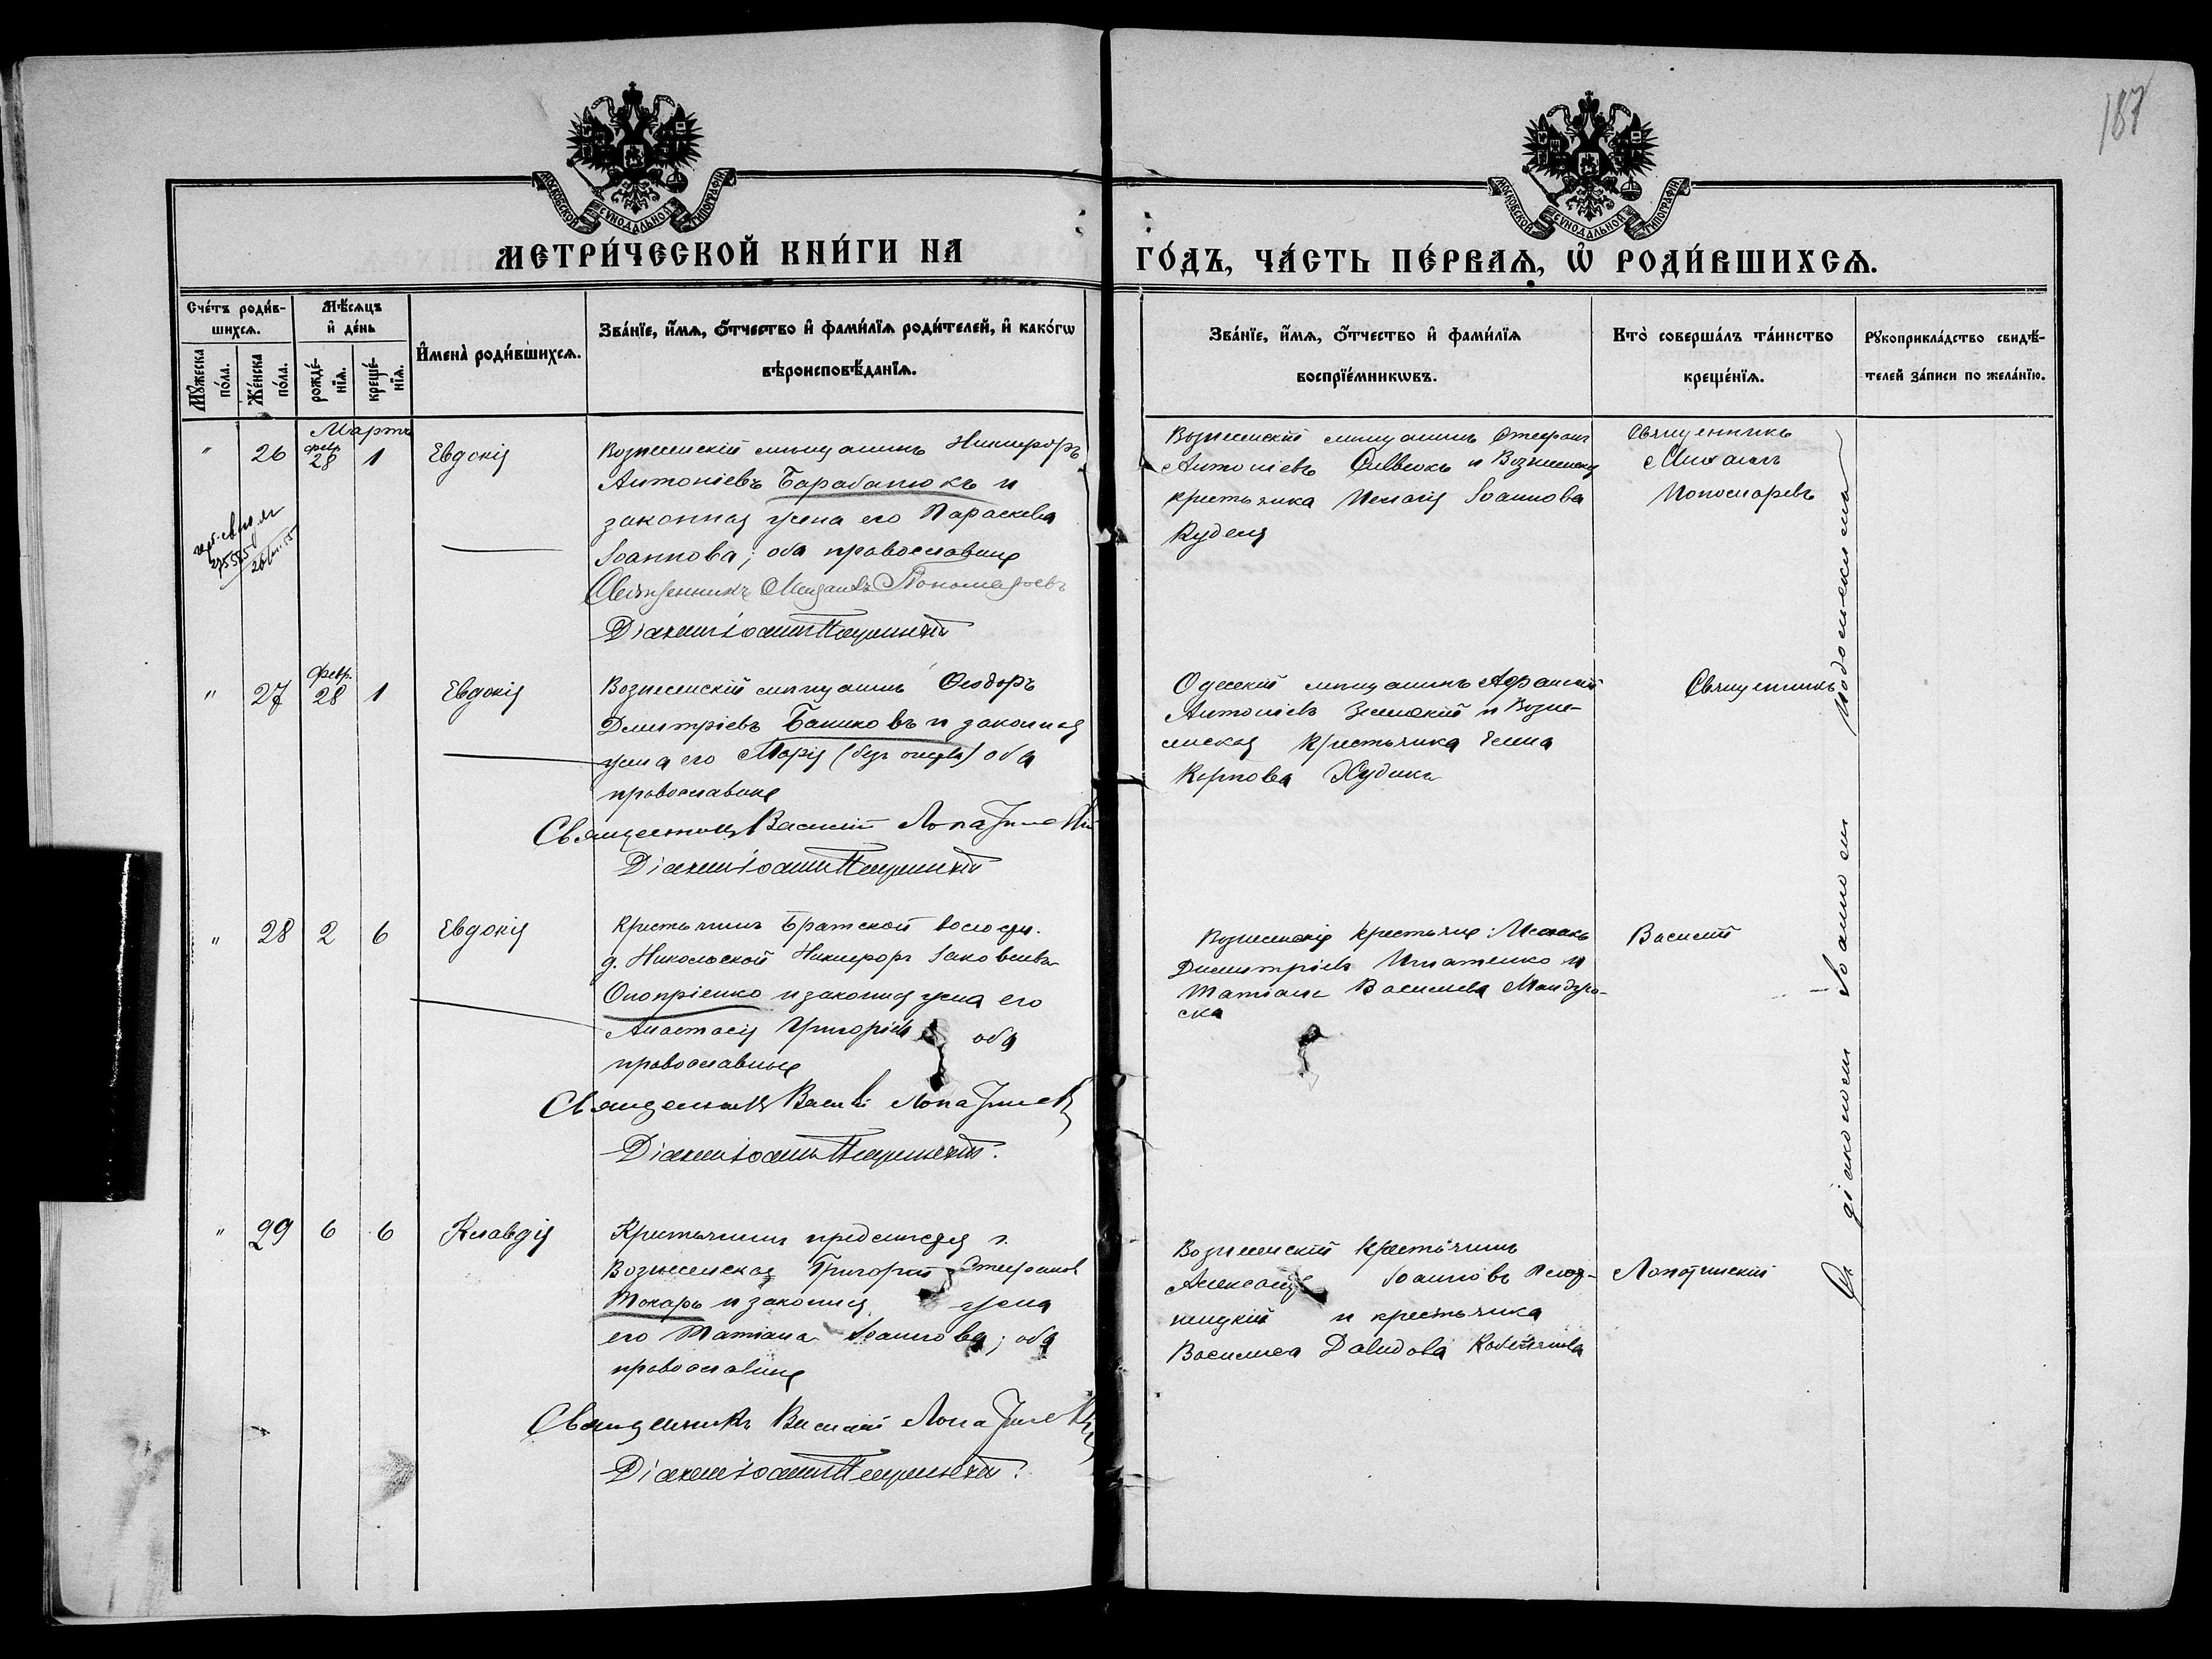 187
МОСКОВСКОЙ СѴНОДАЛЬНОЙ ТИПОГРАФІИ
МОСКОВСКОЙ СѴНОДАЛЬНОЙ ТИПОГРАФІИ
МЕТРИ́ЧЕСКОЙ КНИ́ГИ НА
ГО́ДЪ, ЧА́СТЬ ПЕ́РВАѦ, Ѡ҆ РОДИ́ВШИХСѦ.
Сче́тъ роди́в-
шихсѧ.
Мꙋ́жеска
по́ла.
Же́нска
по́ла.
Мѣ́сѧцъ
и҆ де́нь
рожде́-
нїѧ.
креще́-
нїѧ.
И҆мена̀ роди́вшихсѧ.
Зва́нїе, и҆́мѧ, ѻ҆́тчество и҆ фами́лїѧ роди́телей, и҆ како́гѡ
вѣроисповѣ́данїѧ.
Зва́нїе, и҆́мѧ, ѻ҆́тчество и҆ фами́лїѧ
воспрїе́мникѡвъ.
Кто̀ соверша́лъ та́инство
креще́нїѧ.
Рꙋкоприкла́дство свидѣ́-
телей за́писи по жела́нїю.
Мартъ
" 26 февр. 28 1 Евдокія
Вознесенскій мѣщанинъ Никифоръ
Антоніевъ Барабанюкъ и
законная жена его Параскева
Іоаннова; оба православные
Священникъ Михаилъ Пономаревъ
Діаконъ Іоаннъ
Вознесенскій мѣщанинъ Стефанъ
Антоніевъ и Вознесенская
крестьянка Іоаннова
Куделя
Священникъ
Михаилъ
Пономаревъ
" 27 Февр. 28 1 Евдокія
Вознесенскій мѣщанинъ Ѳеодоръ
Димитріевъ Банковъ и законная
жена его Марія (без отчества) оба
православные
Священникъ Василій Лопатинскій
Діаконъ Іоаннъ
Одесскій мѣщанинъ Афанасій
Антоніевъ и Возне-
сенская крестьянка Елена
Карпова
Священникъ
" 28 2 6 Евдокія
Крестьянинъ Братской волости
д. Николаевской Никифоръ Іаковлевъ
Оноприенко и законная жена его
Анастасія Григоріева оба
православные
Священникъ Василій Лопатинскій
Діаконъ Іоаннъ
Вознесенскіе крестьяне: Исаакъ
Димитріевъ Игнатенко и
Татіана Васильева
ска
Василій
" 29 6 6 Клавдія
Крестьянинъ предмѣстья г.
Вознесенска Григорій Стефановъ
Токарь и законная жена
его Татіана Іоаннова; оба
православные
Священникъ Василій Лопатинскій
Діаконъ Іоаннъ
Вознесенскій крестьянинъ
Александръ Іоанновъ
ницкій и крестьянка
Василиса Давидова
Лопатинскій
Съ діакономъ Іоанномъ